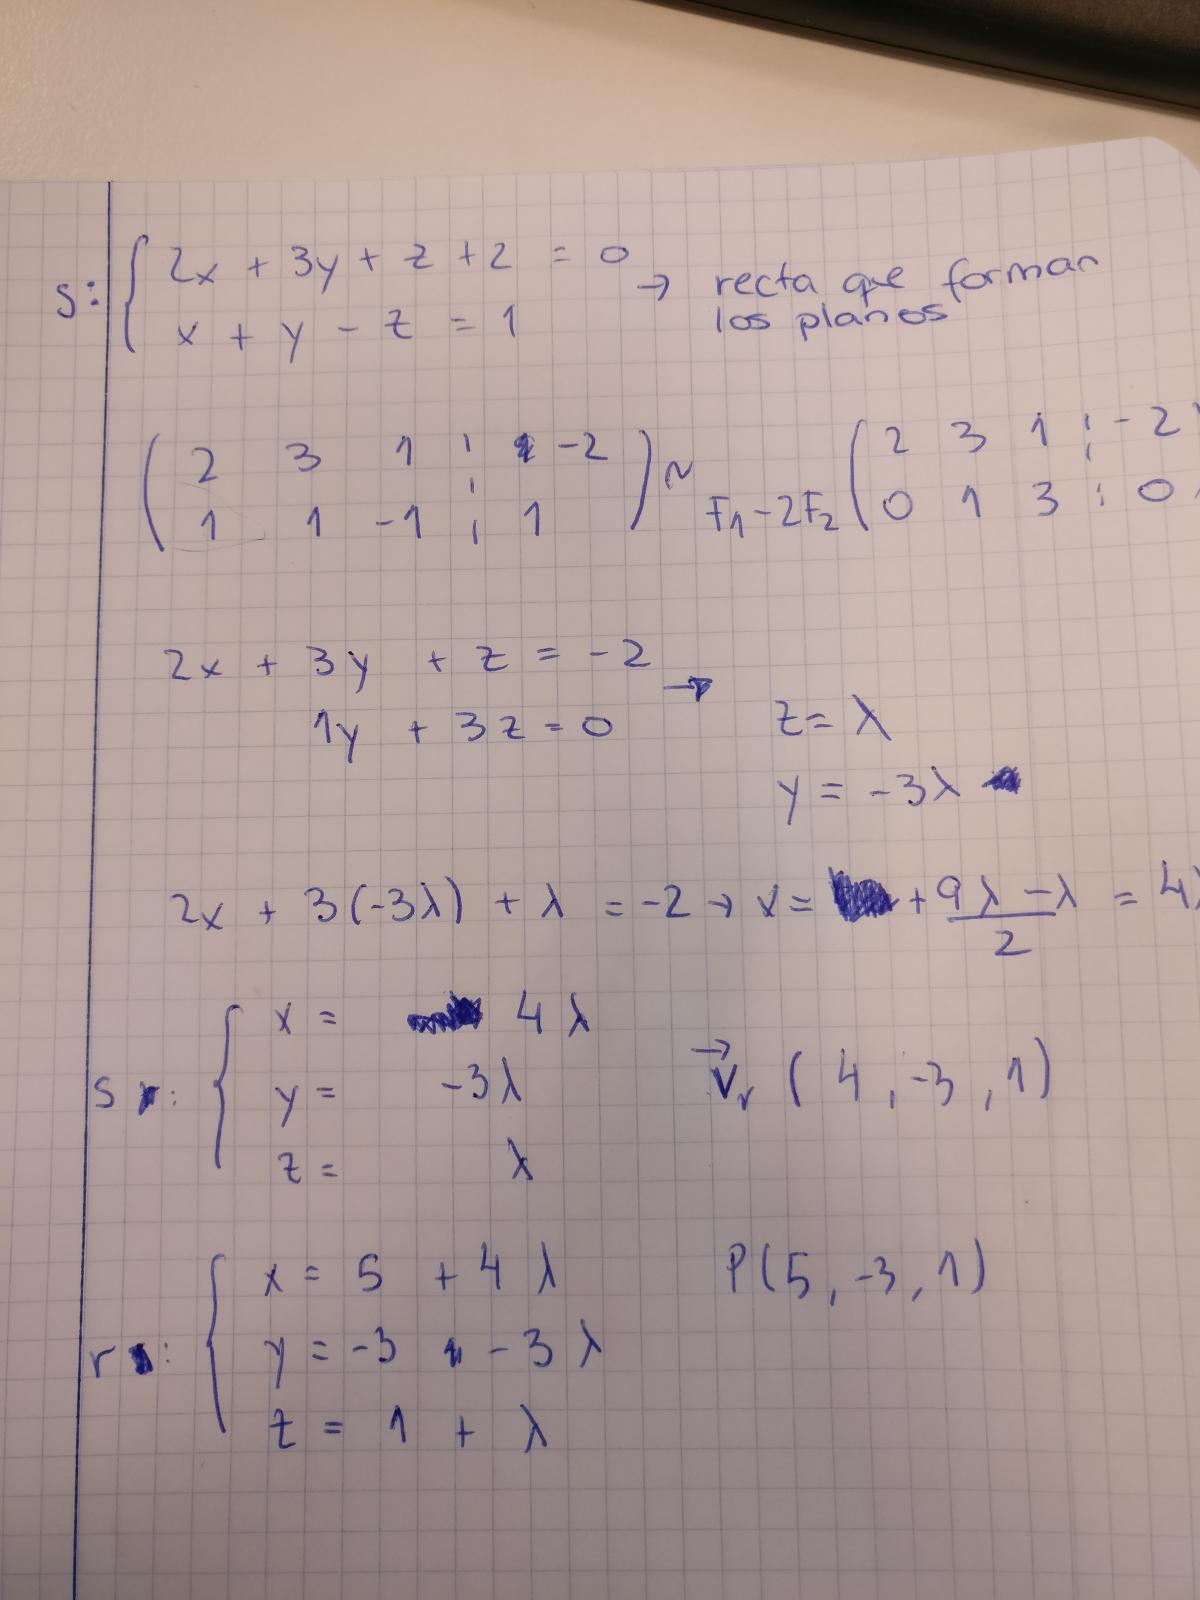 s: { 2x + 3y + z + 2 = 0
x + y - z = 1
→ recta que forman
los planos
( 2 3 1 ¦ -2 ) ~ ( 2 3 1 ¦ -2 )
1 1 -1 ¦ 1 F1-2F2 0 1 3 ¦ 0
2x + 3y + z = -2 →
1y + 3z = 0
z = λ
y = -3λ
2x + 3(-3λ) + λ = -2 → x = +9λ - λ / 2 = 4λ
s : { x = 4λ
y = -3λ
z = λ
v⃗r (4, -3, 1)
r : { x = 5 + 4λ
y = -3 - 3λ
z = 1 + λ
P(5, -3, 1)